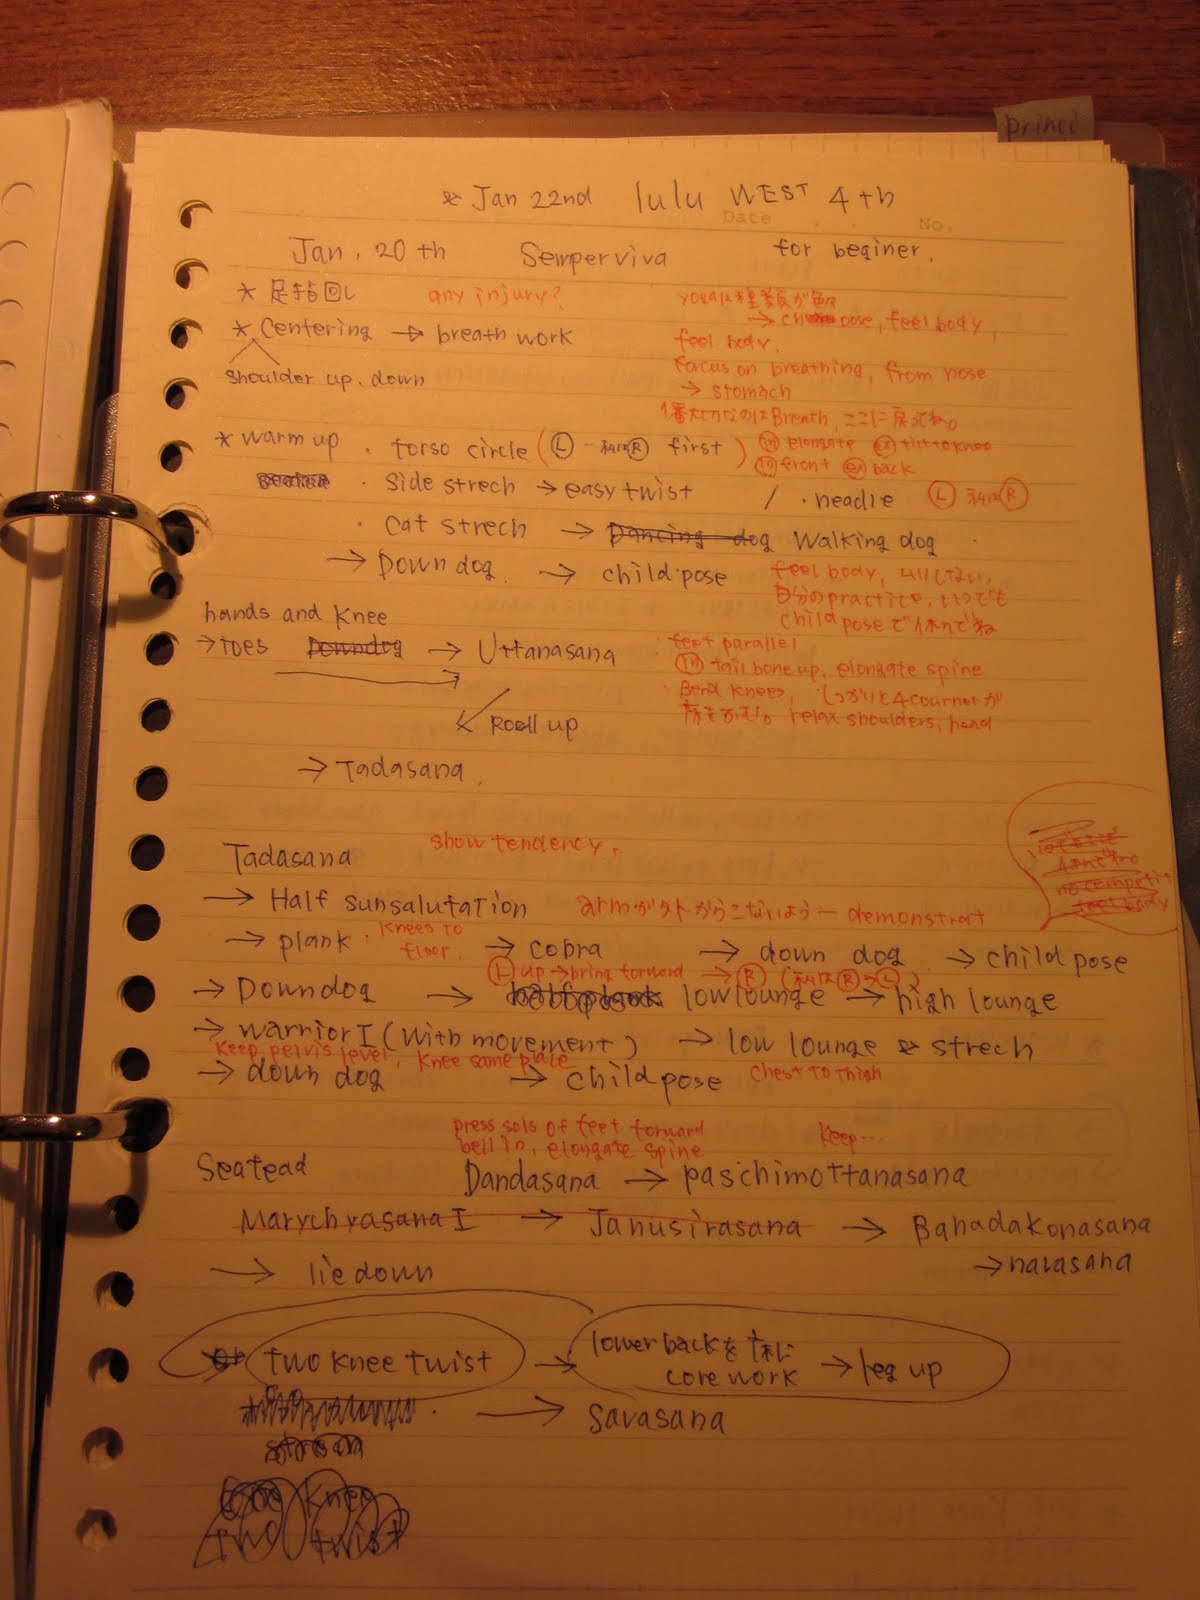 princi
& Jan 22nd lulu WEST 4th
Date No.
Jan. 20th Semperviva for beginer.
* 足指回し any injury?
yogaは種類が色々
→ pose, feel body,
* Centering → breath work
feel body.
shoulder up. down
Focus on breathing, from nose
→ stomach
1番大切なのはBreath, ここに戻ってね。
* warm up . torso circle (Ⓛ – 私はⓇ first) (in) elongate (ex) tilt to knee
(in) front (ex) back
. Side strech → easy twist / . neadle Ⓛ 私はⓇ
. Cat strech → Dancing dog Walking dog
→ Down dog. → child pose
feel body, ムリしない,
自分のpractice, いつでも
child poseで休んでね
hands and knee
→ toes Downdog → Uttanasana
. feet parallel
(in) tail bone up, elongate spine
. Bend knees, しっかりと4cournerが
relax shoulders, head
↙ Roll up
→ Tadasana.
Tadasana show tendency.
no competi
feel body
→ Half sunsalutation armが外からこないよう – demonstrat
→ plank. knees to floor. → cobra → down dog. → child pose
Ⓛ up → bring forward → Ⓡ (私はⓇ→Ⓛ)
→ Downdog → low lounge → high lounge
→ warrior I (with movement) → low lounge & strech
keep pelvis level, knee same place
→ down dog → child pose chest to thigh
press sols of feet forward keep...
bell in, elongate spine
Seatead Dandasana → paschimottanasana
Marychyasana I → Janusirasana → Bahadakonasana
→ navasana
→ lie down
or two knee twist → lower backを
core work → leg up
→ Savasana
knee
two twist